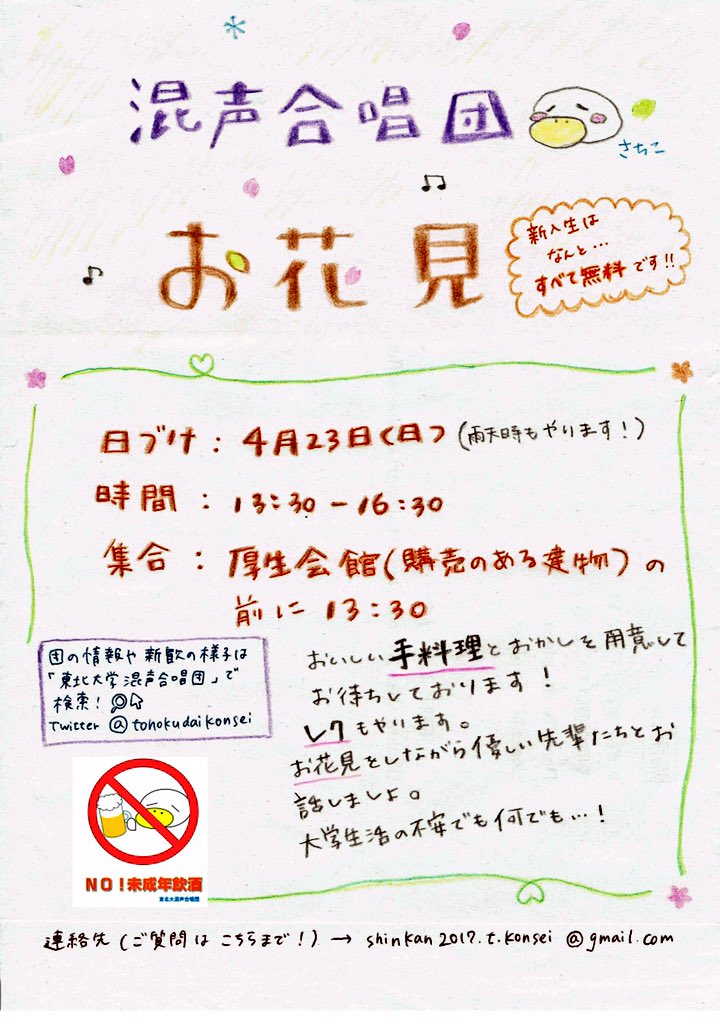 混声合唱団
さちこ
お花見
新入生は
なんと…
すべて無料です!!
日づけ：4月23日(日)(雨天時もやります！)
時間：13:30－16:30
集合：厚生会館(購売のある建物)の
前に13:30
団の情報や新歓の様子は
「東北大学混声合唱団」で
検索！
Twitter @tohokudaikonsei
おいしい手料理とおかしを用意して
お待ちしております！
レクもやります。
お花見をしながら優しい先輩たちとお
話しましょ。
大学生活の不安でも何でも…！
NO！未成年飲酒
東北大混声合唱団
連絡先(ご質問はこちらまで！)→ shinkan2017.t.konsei@gmail.com